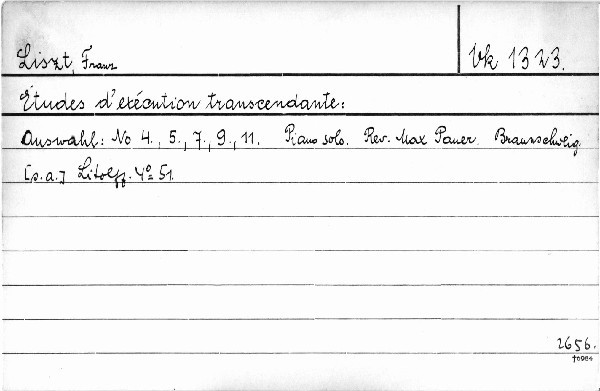 Liszt, Franz
Vk 1323.
Études d'exécution transcendante:
Auswahl: No 4., 5., 7., 9., 11. Piano solo. Rev. Max Pauer. Braunschweig
[s.a.] Litolff. 4º 51.
2656.